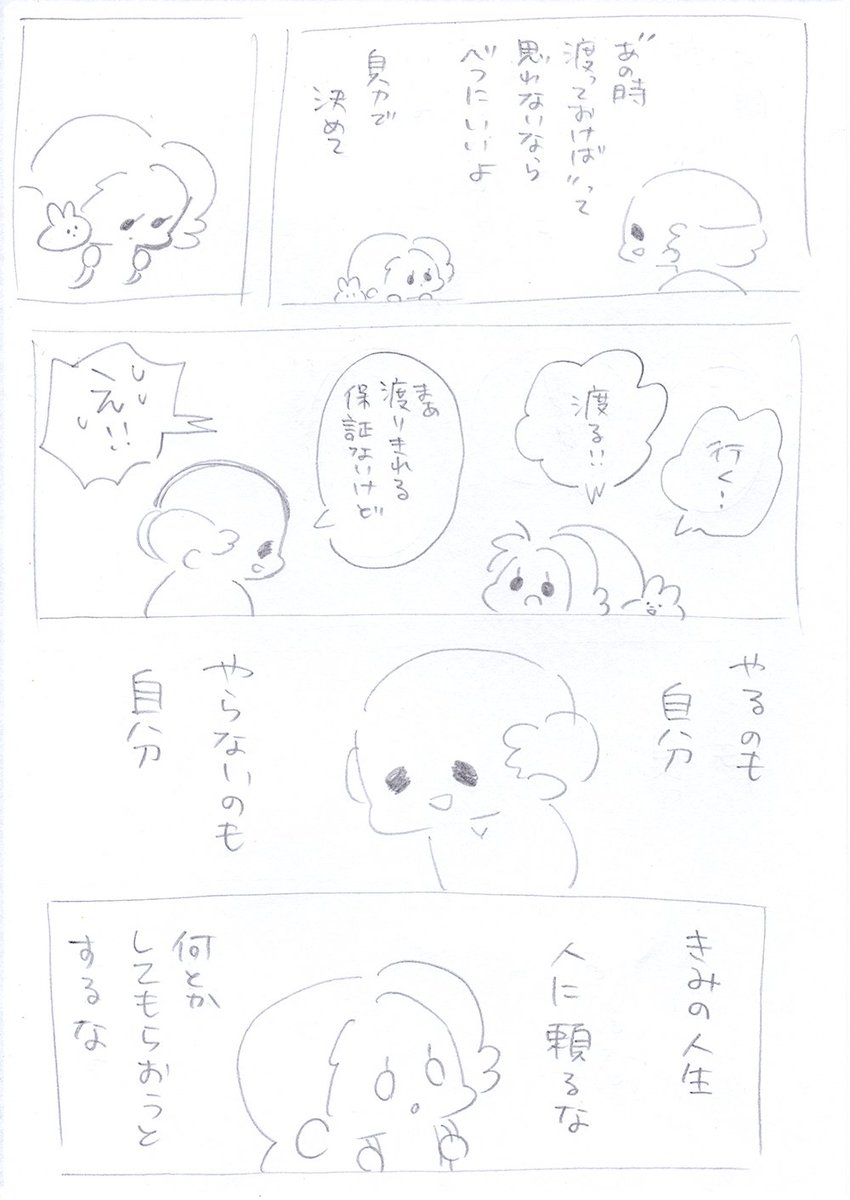 “あの時
渡っておけば”って
思わないなら
べつにいいよ
自分で
決めて
行く…
渡る!!
まあ
渡りきれる
保証ないけど
え!!
やるのも
自分
やらないのも
自分
きみの人生
人に頼るな
何とか
してもらおうと
するな